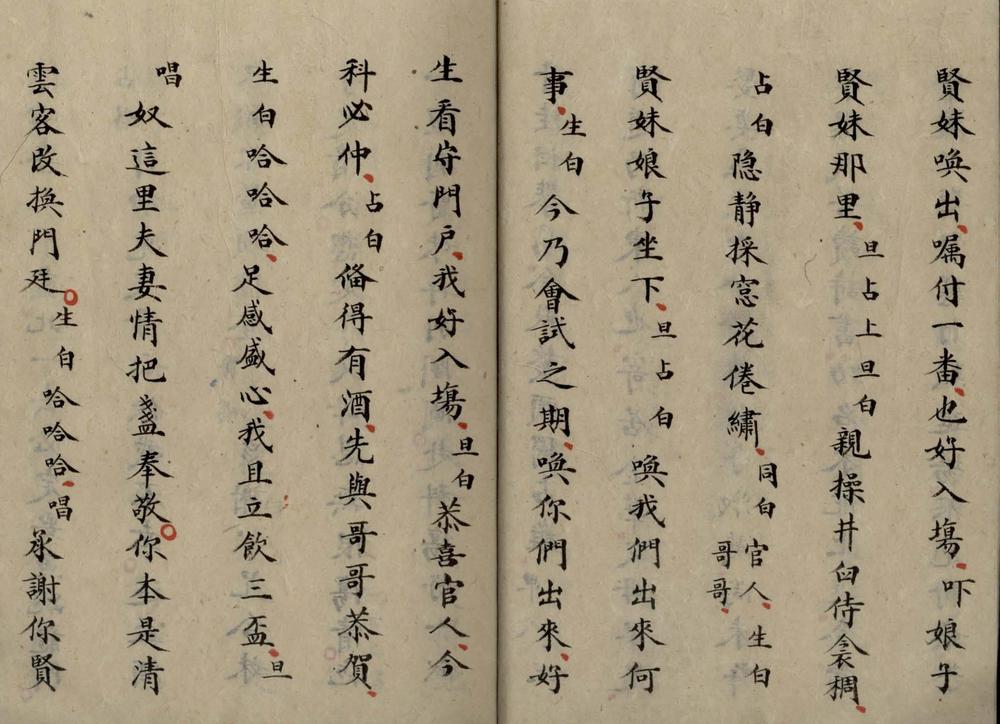 賢妹喚出、嘱付一番、也好入塲、吓娘子
賢妹那里、旦占上旦白親操井臼侍衾稠、
占白隐静採窓花倦繡、同白官人、哥哥、生白
賢妹娘子坐下、旦占白喚我們出來何
事、生白今乃會試之期、喚你們出來、好
生看守門戶、我好入塲、旦白恭喜官人、今
科必仲、占白俻得有酒、先與哥哥恭賀、
生白哈哈哈、足感盛心、我且立飲三盃、旦
唱奴這里夫妻情把盞奉敬。你本是清
雲客改換門廷。生白哈哈哈、唱承謝你賢